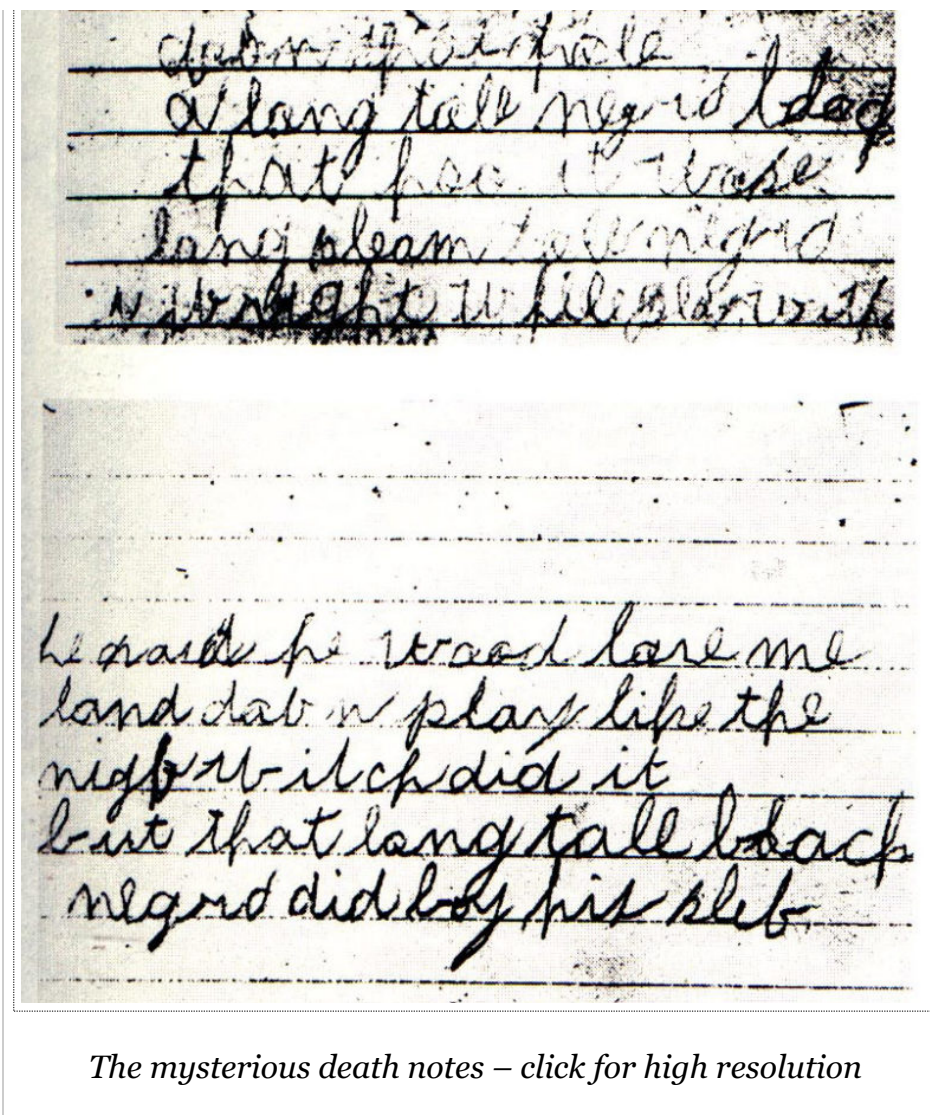 down that hole
a long tall negro black
that hoo it wase
long sleam tall negro
i wright while play with
he said he wood love me
land dab n play like the
night witch did it
but that long tall black
negro did boy his slef
The mysterious death notes – click for high resolution